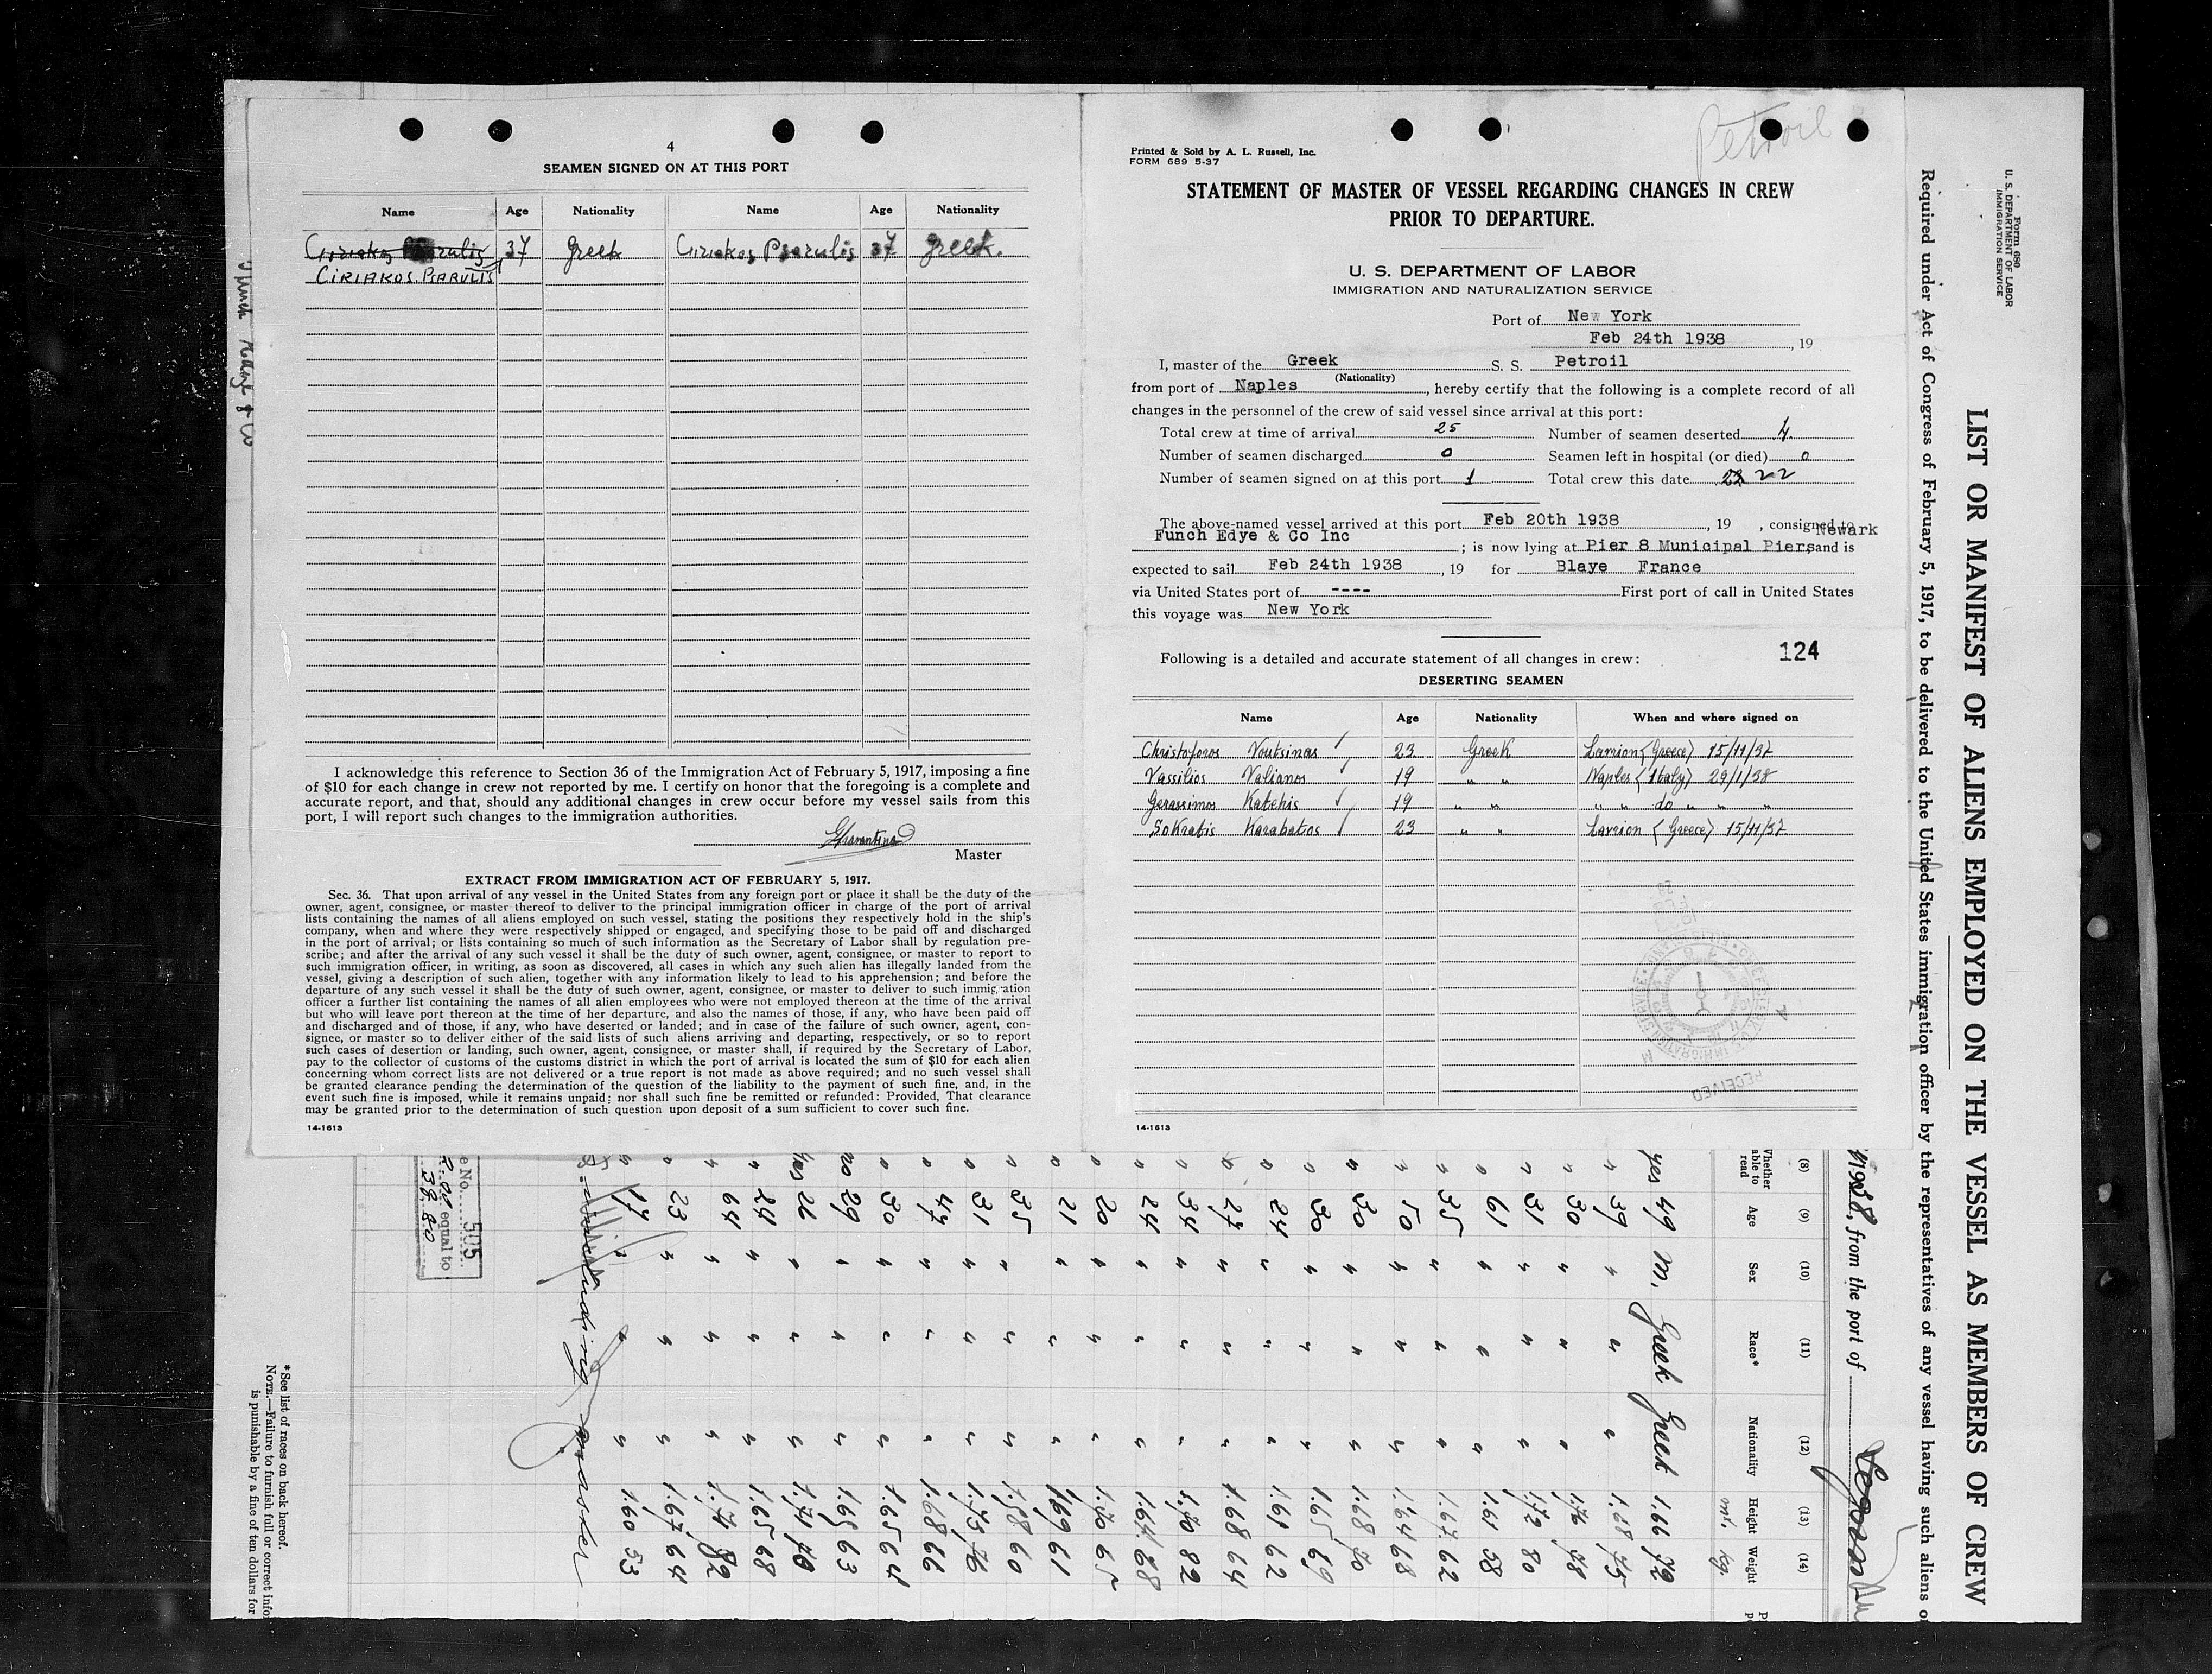 4
SEAMEN SIGNED ON AT THIS PORT
Name Age Nationality Name Age Nationality
Ciriakos Psarulis 37 Greek Ciriakos Psarulis 37 Greek.
CIRIAKOS. PSARULIS
I acknowledge this reference to Section 36 of the Immigration Act of February 5, 1917, imposing a fine
of $10 for each change in crew not reported by me. I certify on honor that the foregoing is a complete and
accurate report, and that, should any additional changes in crew occur before my vessel sails from this
port, I will report such changes to the immigration authorities.
Master
EXTRACT FROM IMMIGRATION ACT OF FEBRUARY 5, 1917.
Sec. 36. That upon arrival of any vessel in the United States from any foreign port or place it shall be the duty of the
owner, agent, consignee, or master thereof to deliver to the principal immigration officer in charge of the port of arrival
lists containing the names of all aliens employed on such vessel, stating the positions they respectively hold in the ship's
company, when and where they were respectively shipped or engaged, and specifying those to be paid off and discharged
in the port of arrival; or lists containing so much of such information as the Secretary of Labor shall by regulation pre-
scribe; and after the arrival of any such vessel it shall be the duty of such owner, agent, consignee, or master to report to
such immigration officer, in writing, as soon as discovered, all cases in which any such alien has illegally landed from the
vessel, giving a description of such alien, together with any information likely to lead to his apprehension; and before the
departure of any such vessel it shall be the duty of such owner, agent, consignee, or master to deliver to such immigration
officer a further list containing the names of all alien employees who were not employed thereon at the time of the arrival
but who will leave port thereon at the time of her departure, and also the names of those, if any, who have been paid off
and discharged and of those, if any, who have deserted or landed; and in case of the failure of such owner, agent, con-
signee, or master so to deliver either of the said lists of such aliens arriving and departing, respectively, or so to report
such cases of desertion or landing, such owner, agent, consignee, or master shall, if required by the Secretary of Labor,
pay to the collector of customs of the customs district in which the port of arrival is located the sum of $10 for each alien
concerning whom correct lists are not delivered or a true report is not made as above required; and no such vessel shall
be granted clearance pending the determination of the question of the liability to the payment of such fine, and, in the
event such fine is imposed, while it remains unpaid; nor shall such fine be remitted or refunded: Provided, That clearance
may be granted prior to the determination of such question upon deposit of a sum sufficient to cover such fine.
14-1613
Petroil
Printed & Sold by A. L. Russell, Inc.
FORM 689 5-37
STATEMENT OF MASTER OF VESSEL REGARDING CHANGES IN CREW
PRIOR TO DEPARTURE.
U. S. DEPARTMENT OF LABOR
IMMIGRATION AND NATURALIZATION SERVICE
Port of New York
Feb 24th 1938, 19
I, master of the Greek S. S. Petroil
(Nationality)
from port of Naples, hereby certify that the following is a complete record of all
changes in the personnel of the crew of said vessel since arrival at this port:
Total crew at time of arrival 25 Number of seamen deserted 4.
Number of seamen discharged 0 Seamen left in hospital (or died) 0
Number of seamen signed on at this port 1 Total crew this date 22
The above-named vessel arrived at this port Feb 20th 1938, 19 , consigned to
Funch Edye & Co Inc ; is now lying at Pier 8 Municipal Piers Newark and is
expected to sail Feb 24th 1938, 19 for Blaye France
via United States port of ---- First port of call in United States
this voyage was New York
124
Following is a detailed and accurate statement of all changes in crew:
DESERTING SEAMEN
Name Age Nationality When and where signed on
Christoforos Voutsinas 23 Greek Lavrion (Greece) 15/11/37
Vassilios Valianos 19 " " Naples (Italy) 29/1/38
Gerassimos Katehis 19 " " " " do " " "
Sokratis Karabatos 23 " " Lavrion (Greece) 15/11/37
RECEIVED
14-1613
Form 680
U. S. DEPARTMENT OF LABOR
IMMIGRATION SERVICE
LIST OR MANIFEST OF ALIENS EMPLOYED ON THE VESSEL AS MEMBERS OF CREW
Required under Act of Congress of February 5, 1917, to be delivered to the United States immigration officer by the representatives of any vessel having such aliens o
1938, from the port of
(8) (9) (10) (11) (12) (13) (14)
Whether able to read Age Sex Race* Nationality Height Weight
mt. kg.
yes 49 m. Greek Greek 1.66 72
" 39 " " " 1.68 75
" 30 " " " 1.76 78
" 31 " " " 1.72 80
" 61 " " " 1.61 58
" 35 " " " 1.67 62
" 50 " " " 1.64 68
" 30 " " " 1.68 70
" 30 " " " 1.65 69
" 24 " " " 1.61 62
" 27 " " " 1.68 64
" 34 " " " 1.70 82
" 24 " " " 1.64 68
" 20 " " " 1.70 65
" 21 " " " 1.69 61
" 35 " " " 1.58 60
" 31 " " " 1.73 76
" 47 " " " 1.68 66
" 30 " " " 1.65 64
no 29 " " " 1.69 63
yes 26 " " " 1.71 70
" 24 " " " 1.65 68
" 64 " " " 1.74 82
" 23 " " " 1.67 64
" 17 " " " 1.60 53
including master
e No. 505
equal to
38.80
*See list of races on back hereof.
NOTE.—Failure to furnish full or correct info
is punishable by a fine of ten dollars for